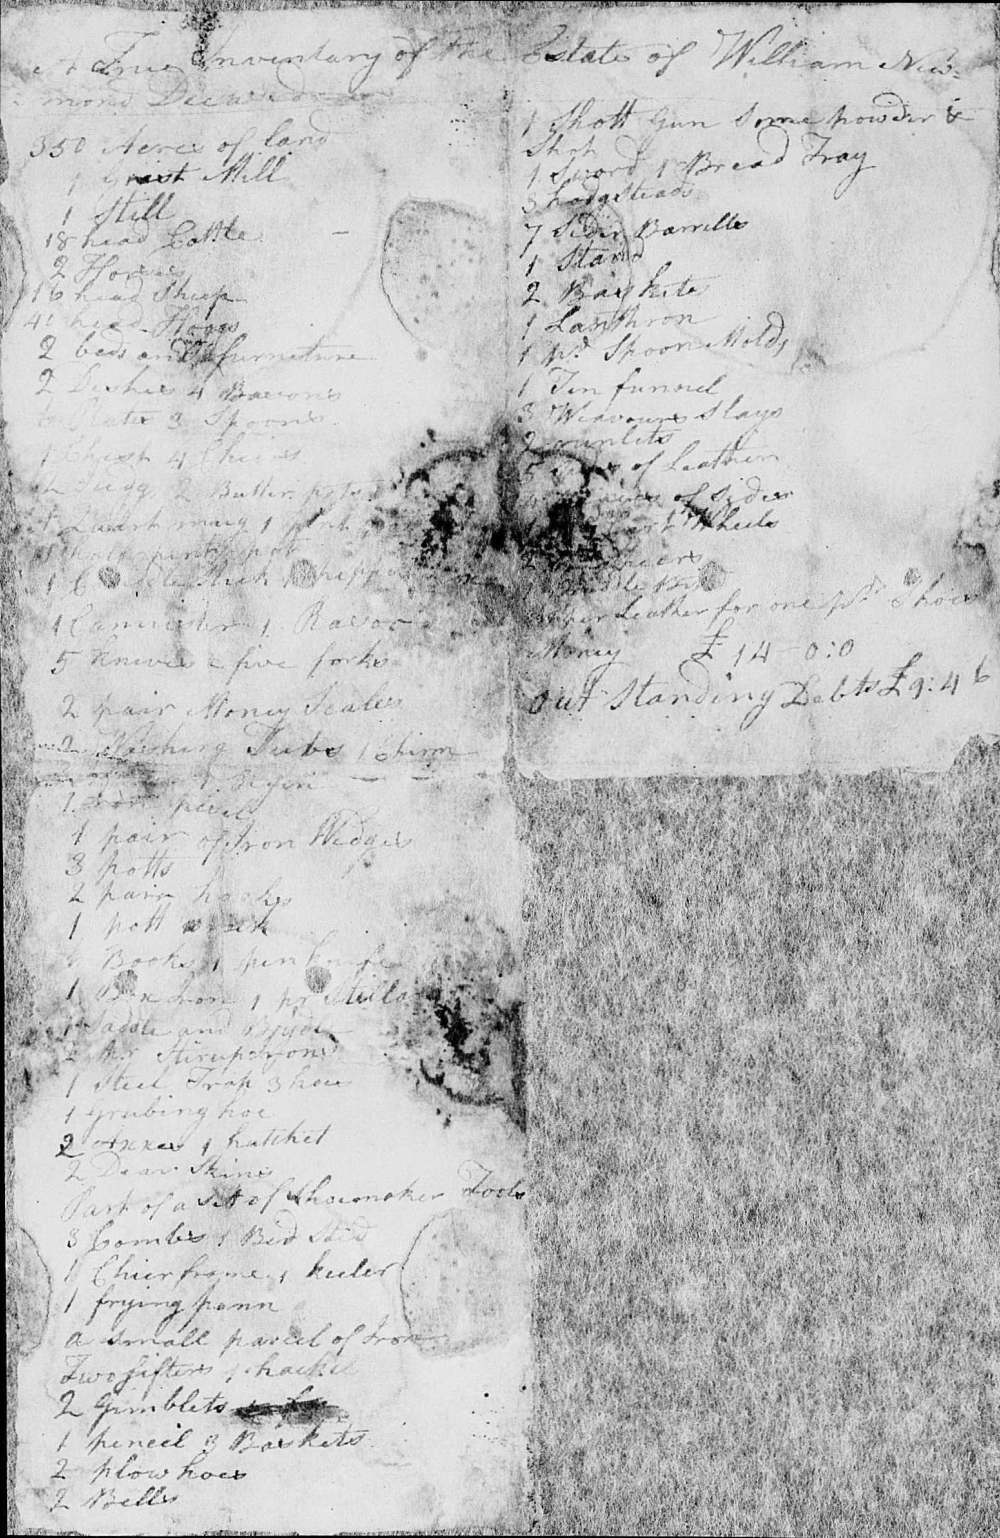 A True Inventary of the Estate of William New=
mond Deceased
350 Acres of land
1 Grist Mill
1 Still
18 head Cattle
2 Horses
16 head Sheep
41 head Hoggs
2 beds and furneture
2 Dishes 4 Basons
6 Plates 3 Spoons
1 Chest 4 Chiers
2 Juggs 2 Butter potts
1 Quart mugg 1 pint
1 pint pot
1 Candle Stick
1 Cannister 1 Rasor
5 Knives & five forks
2 pair Money Scales
2 Washing Tubs 1 Chirn
1 Piggin
1 Iron
1 pair of Iron Wedges
3 potts
2 pair hooks
1 pott
Books 1 penknife
1 Box Iron 1 pr Stilla
1 Saddle and Bridle
2 pr Stirup Irons
1 Steel Trap 3 hoes
1 grubing hoe
2 Axxes 1 hatchet
2 Dear Skins
Part of a Set of Shoemaker Tools
3 Combs 1 Bed Sted
1 Chier frame 1 keeler
1 frying pann
a small parcel of Iron
Two sifters 1 hackel
2 Gimblets
1 pencil 3 Baskets
2 plow hoes
2 Bells
1 Shott Gun Some powder &
Shot
1 Sword 1 Bread Tray
3 hodgsteads
7 Sider Barrells
1 Stand
2 Baskets
1 Lanthron
1 pr Spoon Molds
1 Tin funnel
3 Weavours Slays
2 runlets
5 of Leather
of Sider
Wheels
Leather for one pr Shoes
Money £ 14-0:0
Out Standing Debts £ 9:4 6